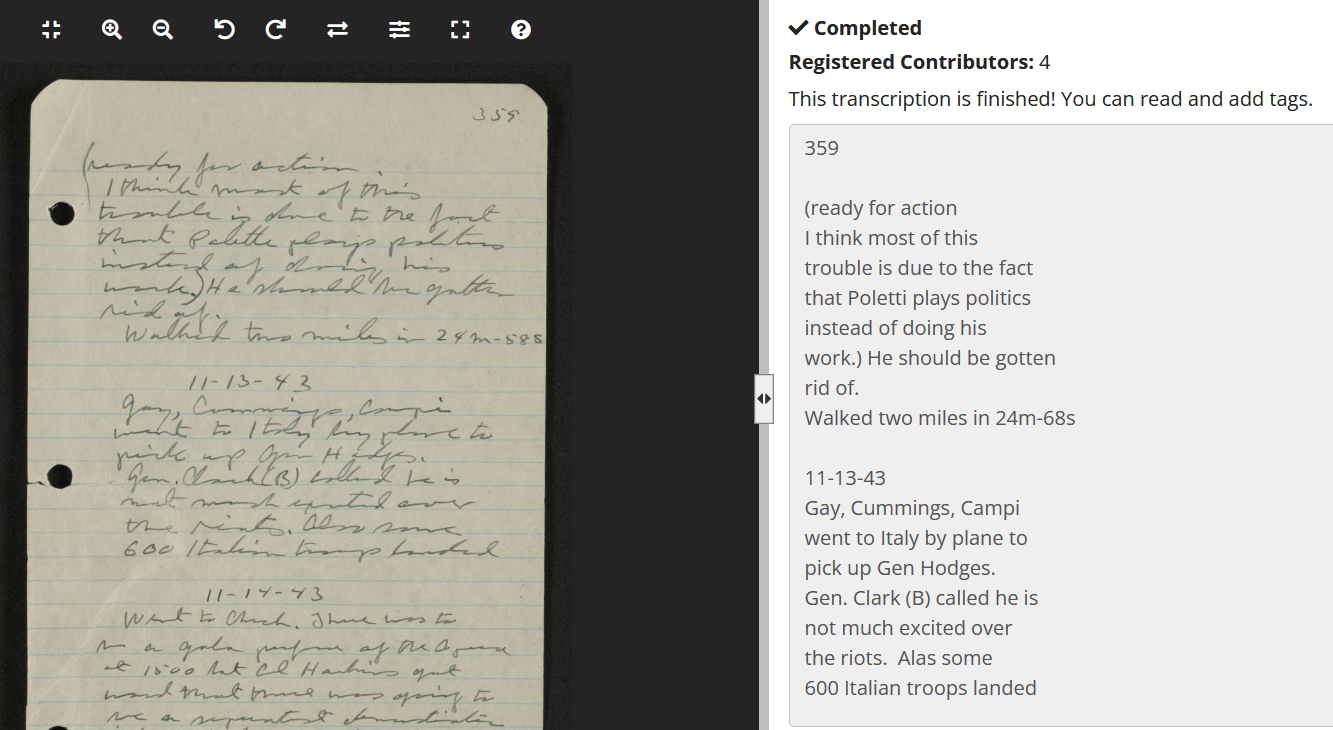 359
(ready for action.
I think most of this
trouble is due to the fact
that Poletti plays politics
instead of doing his
work.) He should be gotten
rid of.
Walked two miles in 24m-58s
11-13-43
Gay, Cummings, Campi
went to Italy by plane to
pick up Gen Hodges.
Gen. Clark (B) called he is
not much excited over
the riots. Also some
600 Italian troops landed
11-14-43
Went to Church. There was to
be a gala performance of the Opera
at 1500 but Col Harkins got
word that there was going to
be a separatist demonstration
Completed
Registered Contributors: 4
This transcription is finished! You can read and add tags.
359
(ready for action
I think most of this
trouble is due to the fact
that Poletti plays politics
instead of doing his
work.) He should be gotten
rid of.
Walked two miles in 24m-68s
11-13-43
Gay, Cummings, Campi
went to Italy by plane to
pick up Gen Hodges.
Gen. Clark (B) called he is
not much excited over
the riots.  Alas some
600 Italian troops landed